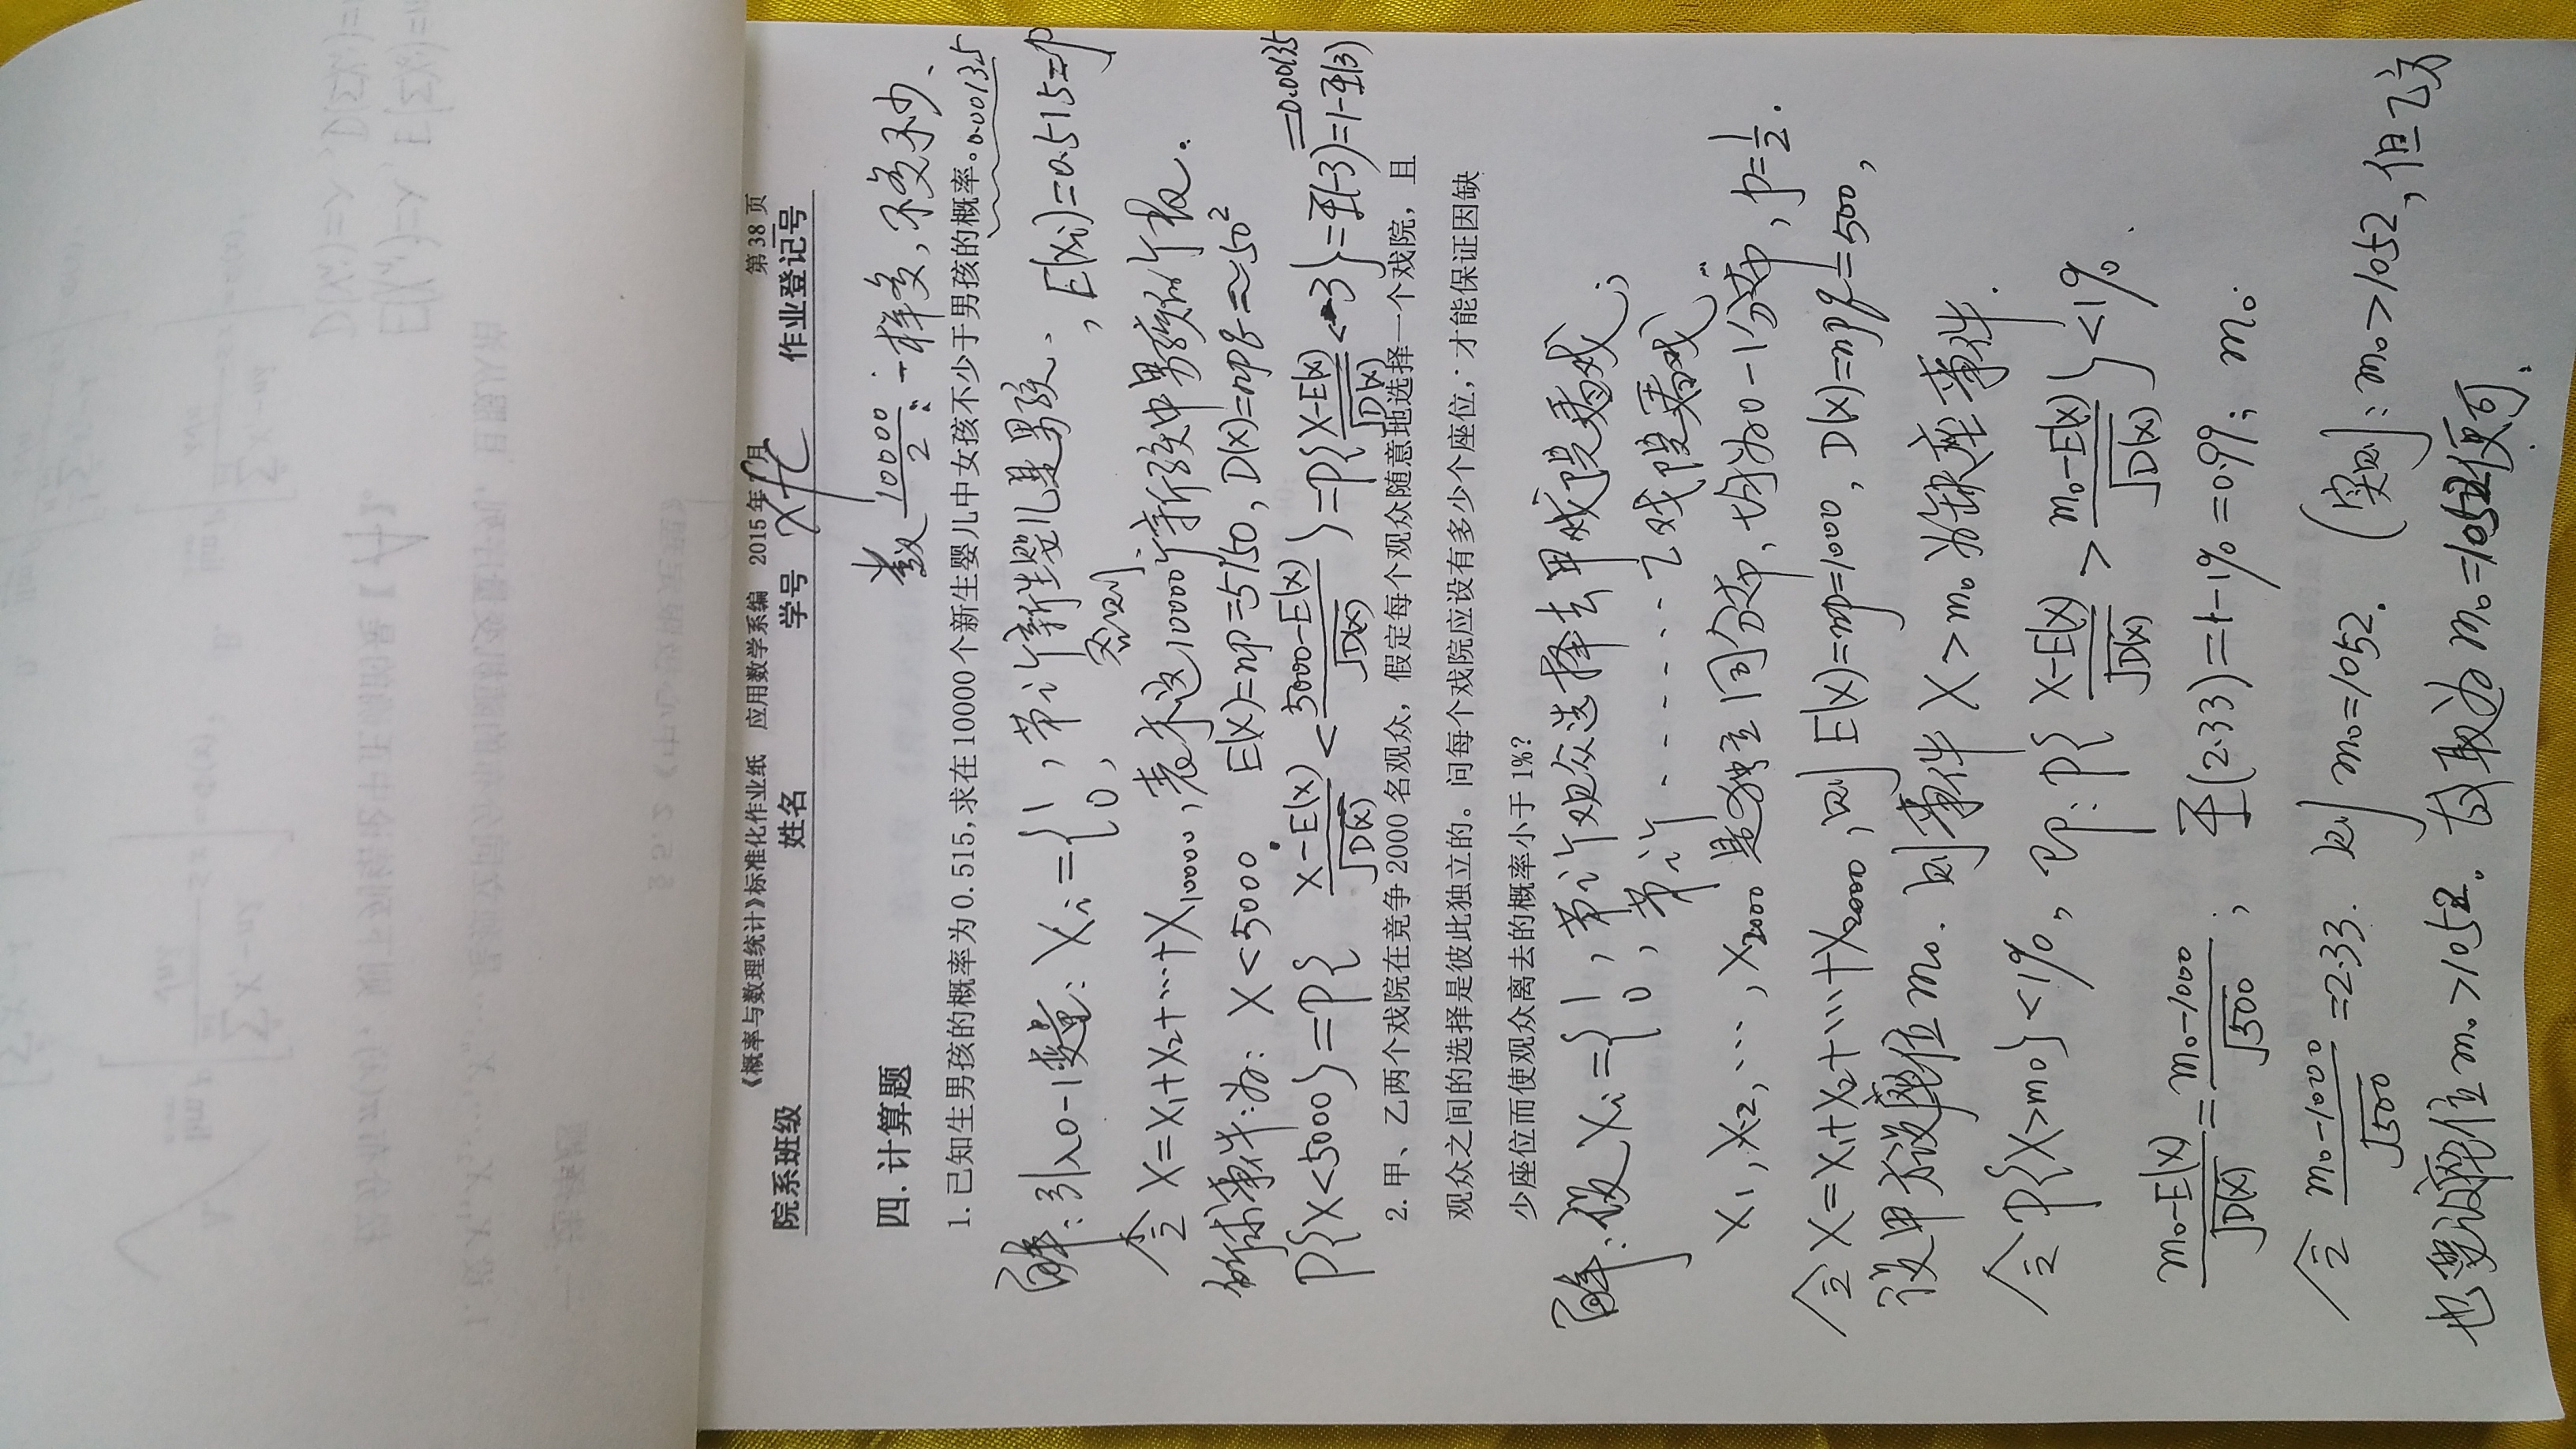 《概率与数理统计》标准化作业纸 应用数学系编 2015年 月 第38页
院系班级 姓名 学号 xfc 作业登记号
四.计算题
数 10000/2: 一样多,不多不少、
1.已知生男孩的概率为0.515,求在10000个新生婴儿中女孩不少于男孩的概率。0.00135
解:引入0-1变量: Xi={1, 第i个新生婴儿是男孩、
0, 否则 , E(Xi)=0.515=p
令 X=X1+X2+…+X10000,表示这10000个新孩中男孩的个数.
所求事件为: X<5000. E(X)=np=5150, D(X)=npq≈50²
P{X<5000}=P{ (X-E(X))/√D(X) < (5000-E(X))/√D(X) }=P{(X-E(X))/√D(X) <-3}=Φ(-3)=1-Φ(3) =0.00135
2.甲、乙两个戏院在竞争2000名观众,假定每个观众随意地选择一个戏院,且
观众之间的选择是彼此独立的。问每个戏院应设有多少个座位,才能保证因缺
少座位而使观众离去的概率小于1%?
解:设 Xi={1, 第i个观众选择去甲戏院看戏;
0, 第i个 ······· 乙戏院看戏.
X1, X2, …, X2000 是独立同分布, 均为0-1分布, p=1/2.
令 X=X1+X2+…+X2000, 则 E(X)=np=1000, D(X)=npq=500,
设甲方设座位m0. 则事件 X>m0 为缺座事件.
令P{X>m0}<1%, 即: P{ (X-E(X))/√D(X) > (m0-E(X))/√D(X) }<1%.
(m0-E(X))/√D(X) = (m0-1000)/√500 ; Φ(2.33)=1-1%=0.99; m0.
令 (m0-1000)/√500 =2.33. 则 m0=1052. (实则: m0>1052, 但乙方
也要设座位m0>1052. 故取为m0=1052便可.